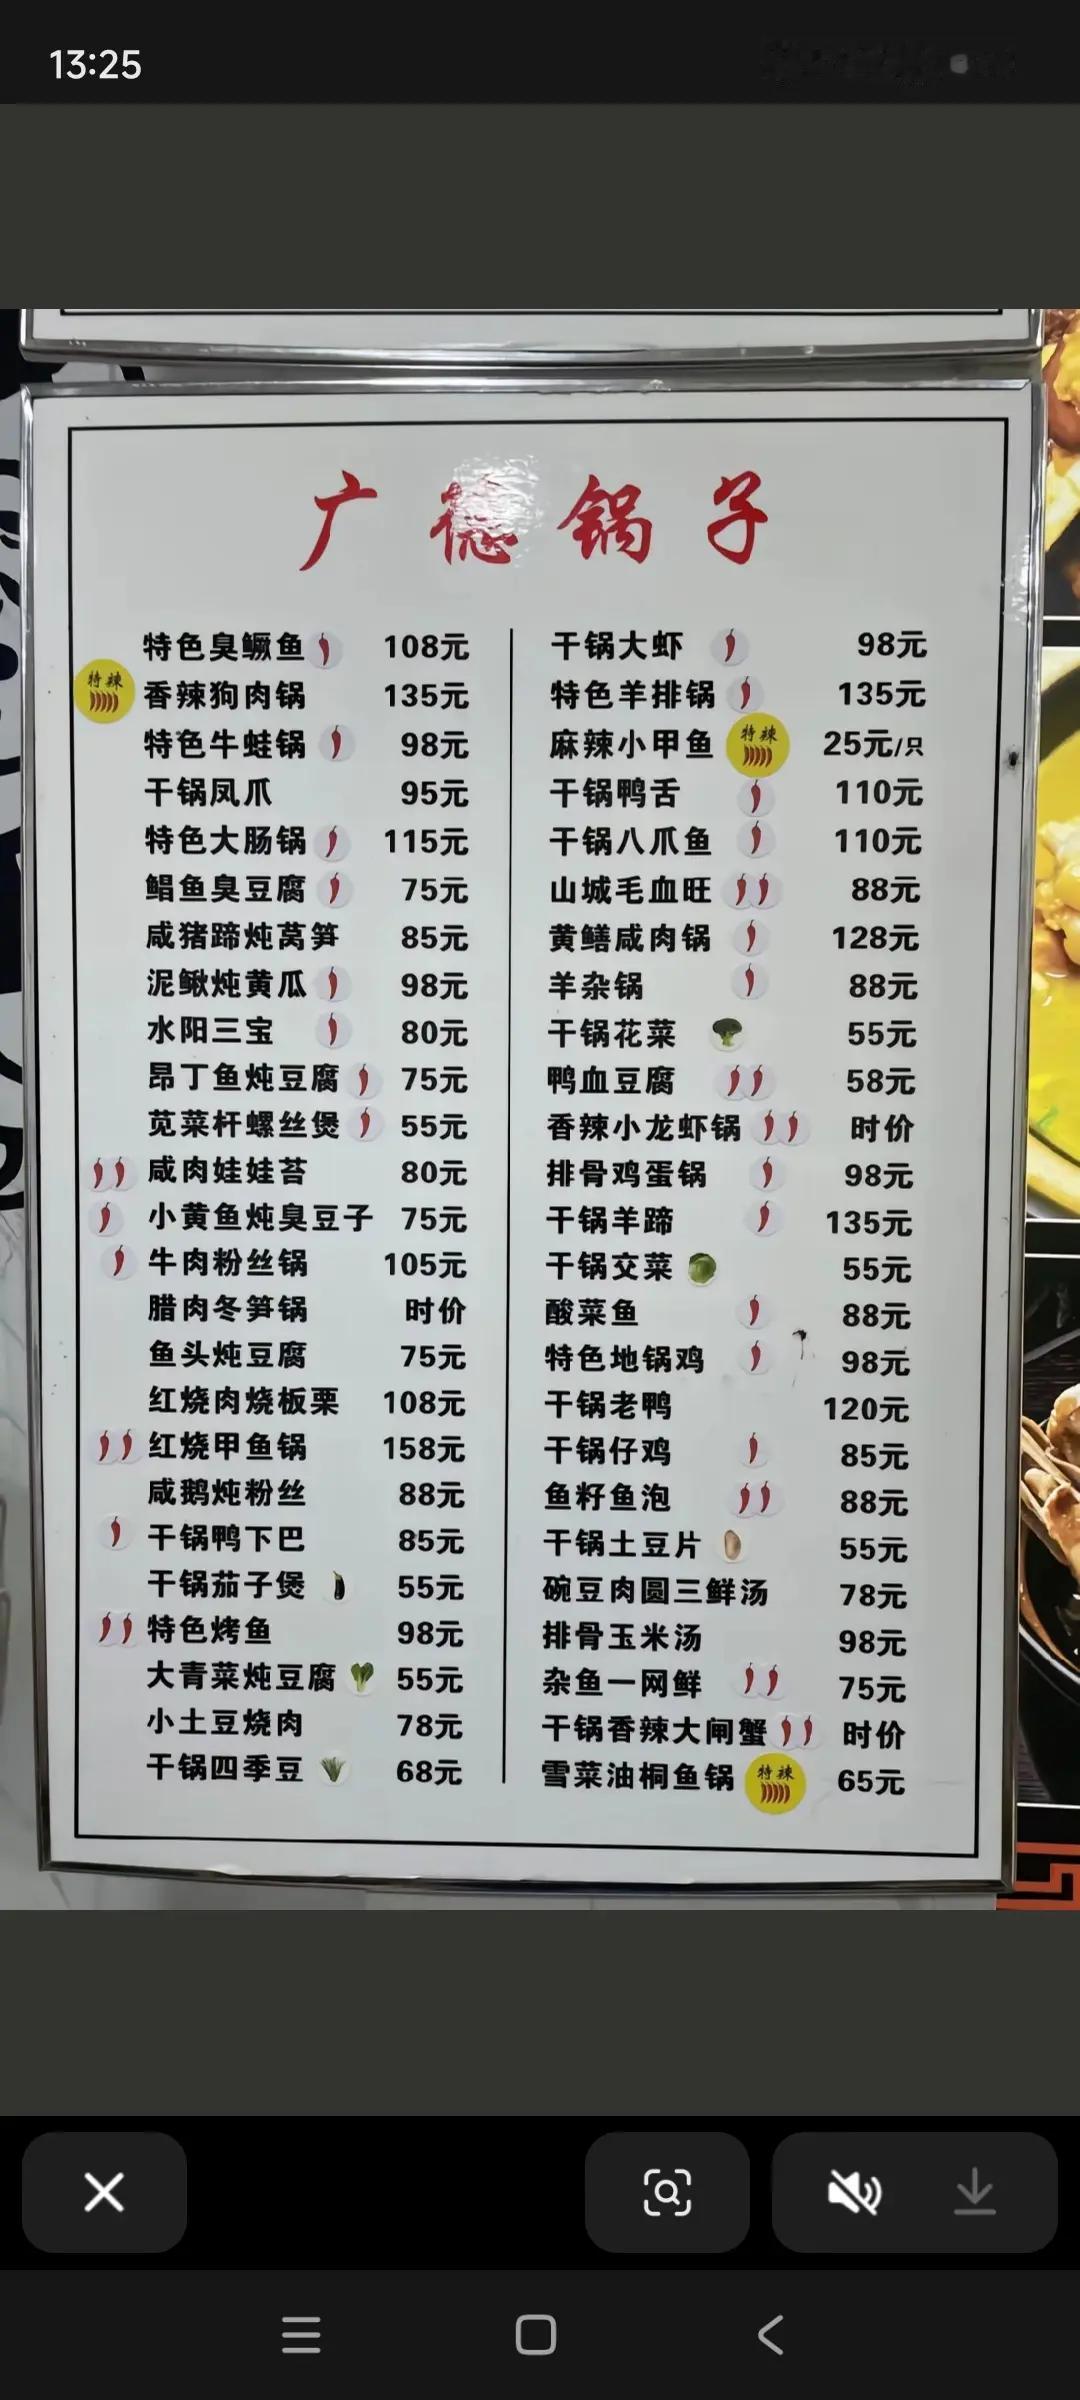 13:25
广德锅子
特色臭鳜鱼 108元
特辣 香辣狗肉锅 135元
特色牛蛙锅 98元
干锅凤爪 95元
特色大肠锅 115元
鲳鱼臭豆腐 75元
咸猪蹄炖莴笋 85元
泥鳅炖黄瓜 98元
水阳三宝 80元
昂丁鱼炖豆腐 75元
苋菜杆螺丝煲 55元
咸肉娃娃苔 80元
小黄鱼炖臭豆子 75元
牛肉粉丝锅 105元
腊肉冬笋锅 时价
鱼头炖豆腐 75元
红烧肉烧板栗 108元
红烧甲鱼锅 158元
咸鹅炖粉丝 88元
干锅鸭下巴 85元
干锅茄子煲 55元
特色烤鱼 98元
大青菜炖豆腐 55元
小土豆烧肉 78元
干锅四季豆 68元
干锅大虾 98元
特色羊排锅 135元
麻辣小甲鱼 特辣 25元/只
干锅鸭舌 110元
干锅八爪鱼 110元
山城毛血旺 88元
黄鳝咸肉锅 128元
羊杂锅 88元
干锅花菜 55元
鸭血豆腐 58元
香辣小龙虾锅 时价
排骨鸡蛋锅 98元
干锅羊蹄 135元
干锅交菜 55元
酸菜鱼 88元
特色地锅鸡 98元
干锅老鸭 120元
干锅仔鸡 85元
鱼籽鱼泡 88元
干锅土豆片 55元
碗豆肉圆三鲜汤 78元
排骨玉米汤 98元
杂鱼一网鲜 75元
干锅香辣大闸蟹 时价
雪菜油桐鱼锅 特辣 65元